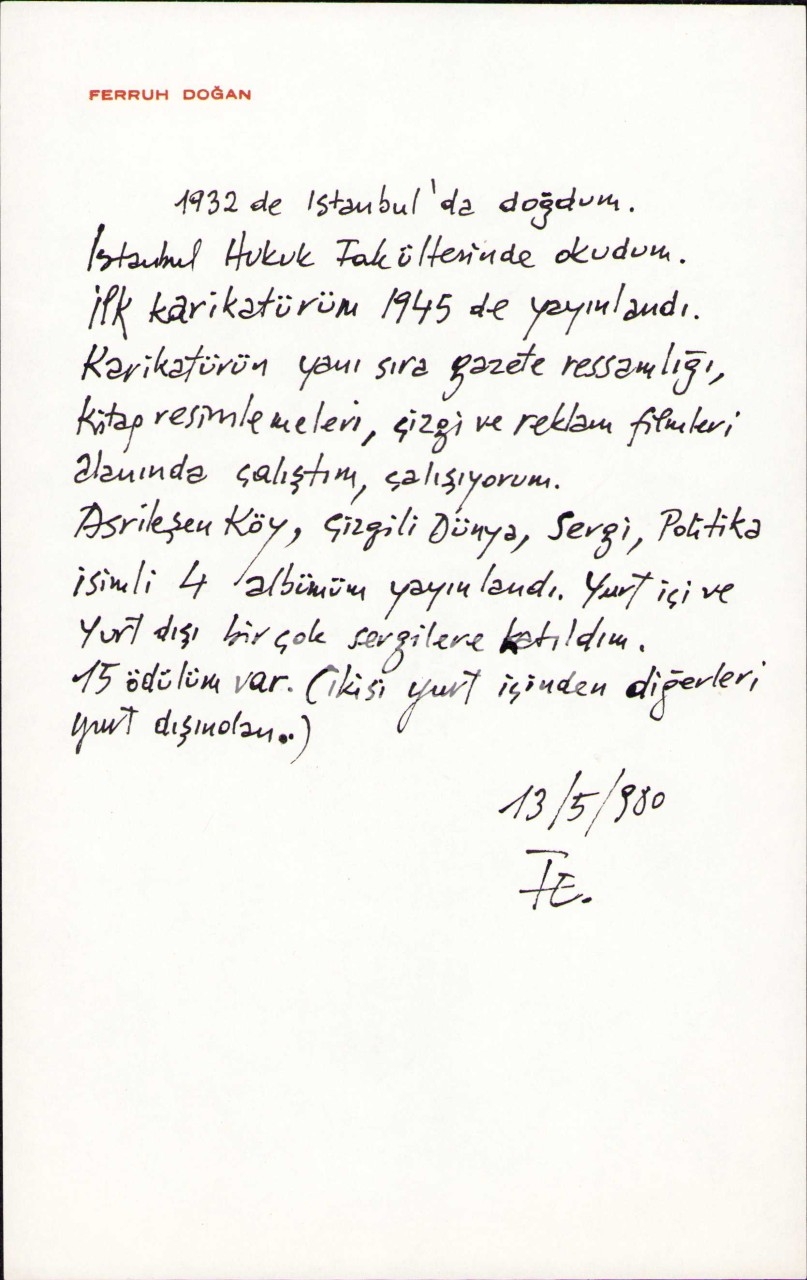 FERRUH DOĞAN
1932 de Istanbul'da doğdum.
İstanbul Hukuk Fakültesinde okudum.
İlk karikatürüm 1945 de yayınlandı.
Karikatürün yanı sıra gazete ressamlığı,
kitap resimlemeleri, çizgi ve reklam filmleri
alanında çalıştım, çalışıyorum.
Asrileşen Köy, Çizgili Dünya, Sergi, Politika
isimli 4 albümüm yayınlandı. Yurt içi ve
Yurt dışı bir çok sergilere katıldım.
15 ödülüm var. (ikisi yurt içinden diğerleri
yurt dışından..)
13/5/980
FE.